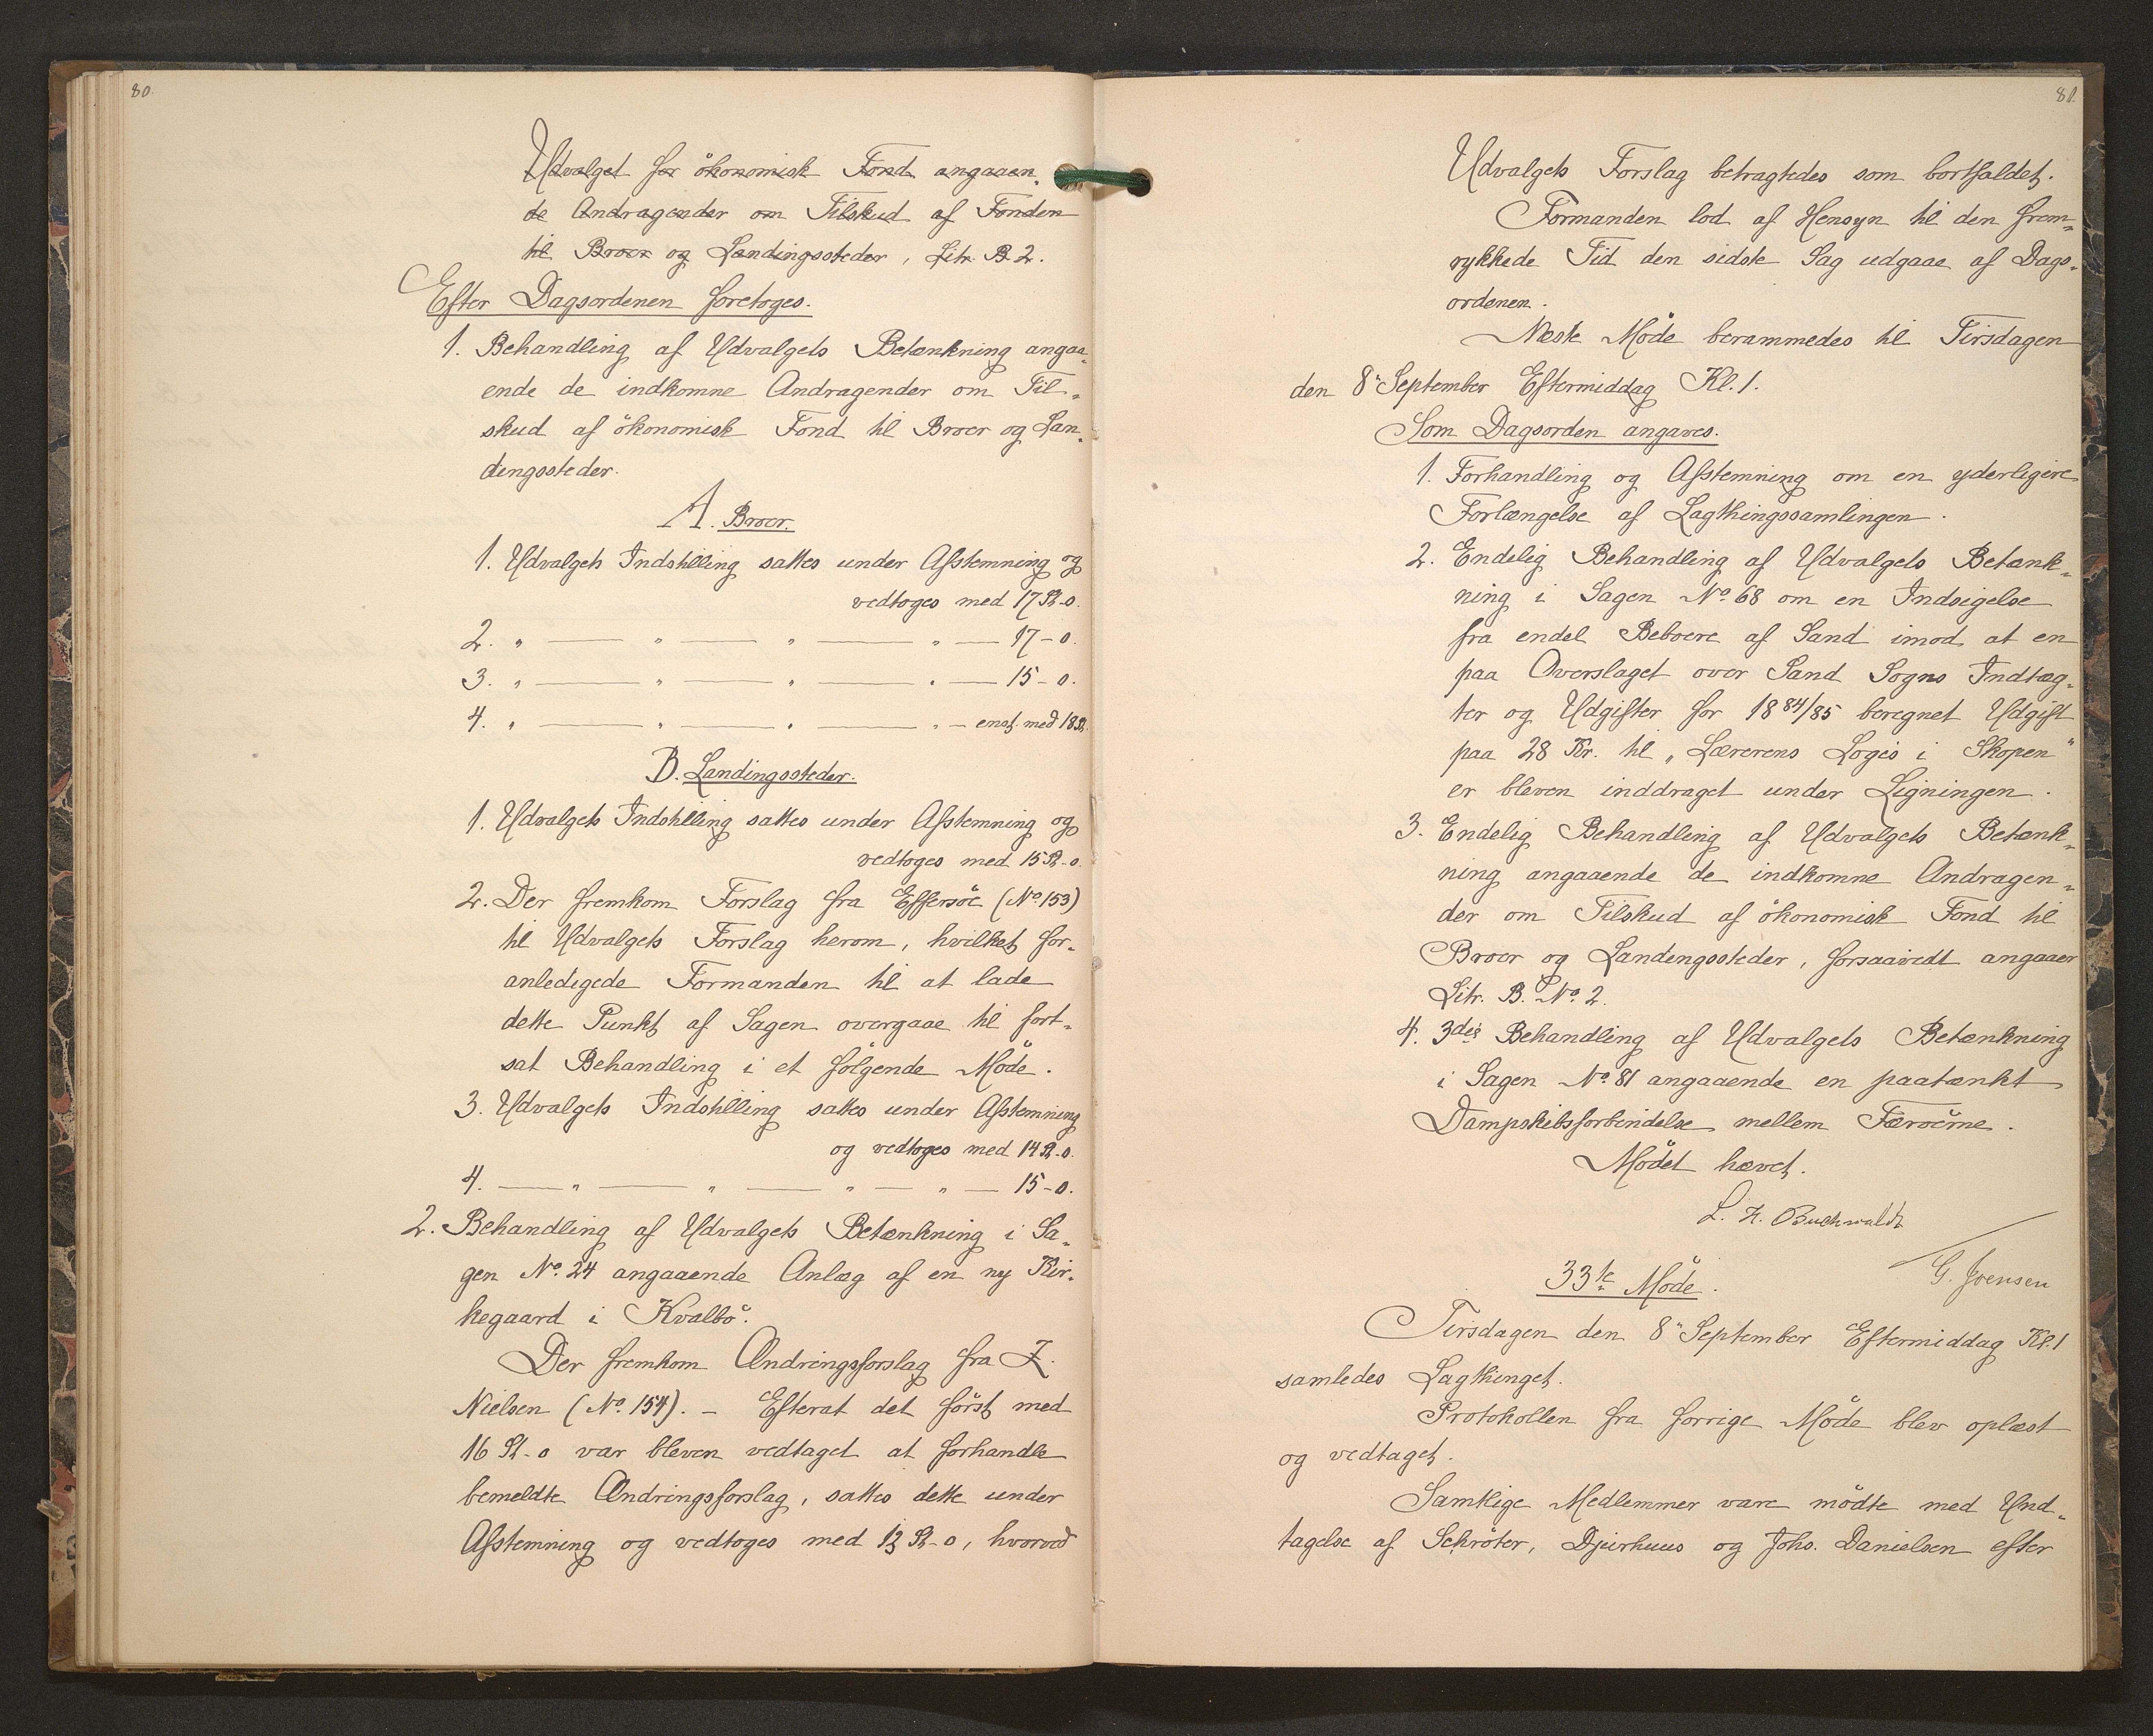 80.
Udvalget for ökonomisk Fond angaaen„
de Andragender om Tilskud af Fonden
til Broer og Landingssteder, Litr. B. 2.
Efter Dagsordenen foretoges.
1. Behandling af Udvalgets Betænkning angaa„
ende de indkomne Andragender om Til„
skud af ökonomisk Fond til Broer og Lan„
dengssteder.
A. Broer.
1. Udvalgets Indstilling sattes under Afstemning og
vedtoges med 17 St-0.
2. „ — „ — „ — „ — 17-0.
3. „ — „ — „ — „ — 15-0.
4. „ — „ — „ — „ — enst. med 18 St.
B. Landingssteder.
1. Udvalgets Indstilling sattes under Afstemning og
vedtoges med 15 St-0.
2. Der fremkom Forslag fra Effersöe (No. 153)
til Udvalgets Forslag herom, hvilket for„
anledigede Formanden til at lade
dette Punkt af Sagen overgaae til fort„
sat Behandling i et fölgende Möde.
3. Udvalgets Indstilling sattes under Afstemning
og vedtoges med 14 St-0.
4. — „ — „ — „ — „ — 15-0.
2. Behandling af Udvalgets Betænkning i Sa„
gen No. 24 angaaende Anlæg af en ny Kir„
kegaard i Kvalbö.
Der fremkom Ændringsforslag fra Z.
Nielsen (No. 154). – Efterat det först med
16 St-0 var bleven vedtaget at forhandle
bemeldte Ændringsforslag, sattes dette under
Afstemning og vedtoges med 13 St-0, hvorved
81.
Udvalgets Forslag betragtedes som bortfaldet.
Formanden lod af Hensyn til den frem„
rykkede Tid den sidste Sag udgaae af Dags„
ordenen.
Næste Möde berammedes til Tirsdagen
den 8" September Eftermiddag Kl. 1.
Som Dagsorden angaves.
1. Forhandling og Afstemning om en yderligere
Forlængelse af Lagthingssamlingen.
2. Endelig Behandling af Udvalgets Betænk„
ning i Sagen No. 68 om en Indsigelse
fra endel Beboere af Sand imod at en
paa Overslaget over Sand Sogns Indtæg„
ter og Udgifter for 1884/85 beregnet Udgift
paa 28 Kr. til „Lærerens Logis i Skopen"
er bleven inddraget under Ligningen.
3. Endelig Behandling af Udvalgets Betænk„
ning angaaende de indkomne Andragen„
der om Tilskud af ökonomisk Fond til
Broer og Landengssteder, forsaavidt angaaer
Litr. B. No. 2.
4. 3die Behandling af Udvalgets Betænkning
i Sagen No. 81 angaaende en paatænkt
Dampskibsforbindelse mellem Færöerne.
Mödet hævet.
L. H. Buchwaldt
G. Joensen
33te Möde.
Tirsdagen den 8" September Eftermiddag Kl. 1
samledes Lagthinget.
Protokollen fra forrige Möde blev oplæst
og vedtaget.
Samtlige Medlemmer vare mödte med Und„
tagelse af Schröter, Djurhuus og Johs. Danielsen efter